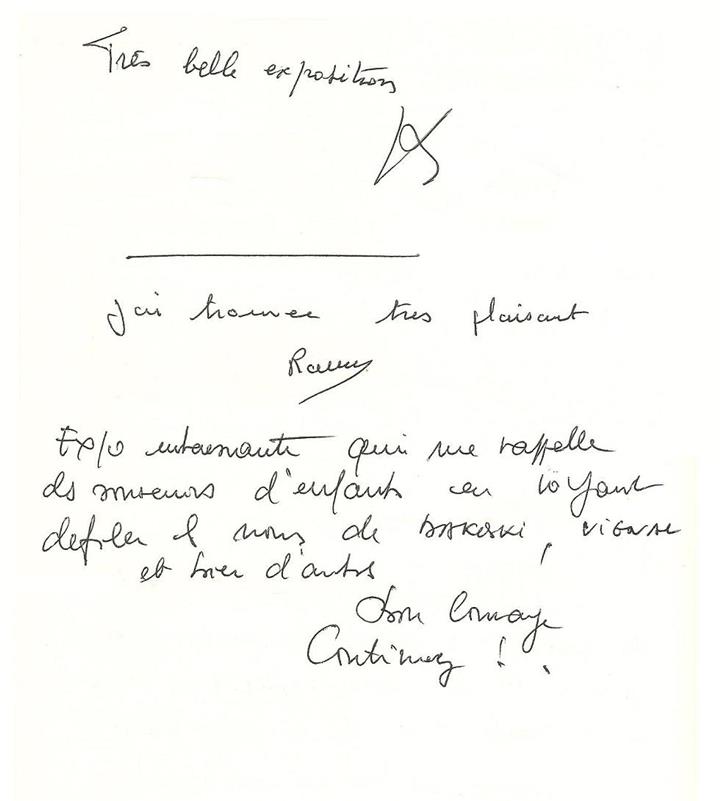 Très belle exposition
J'ai trouvée très plaisant
Expo intéressante qui me rappelle
ds souvenirs d'enfants en voyant
defiler l noms de
et bien d'autrs
Bon courage
Continuez !